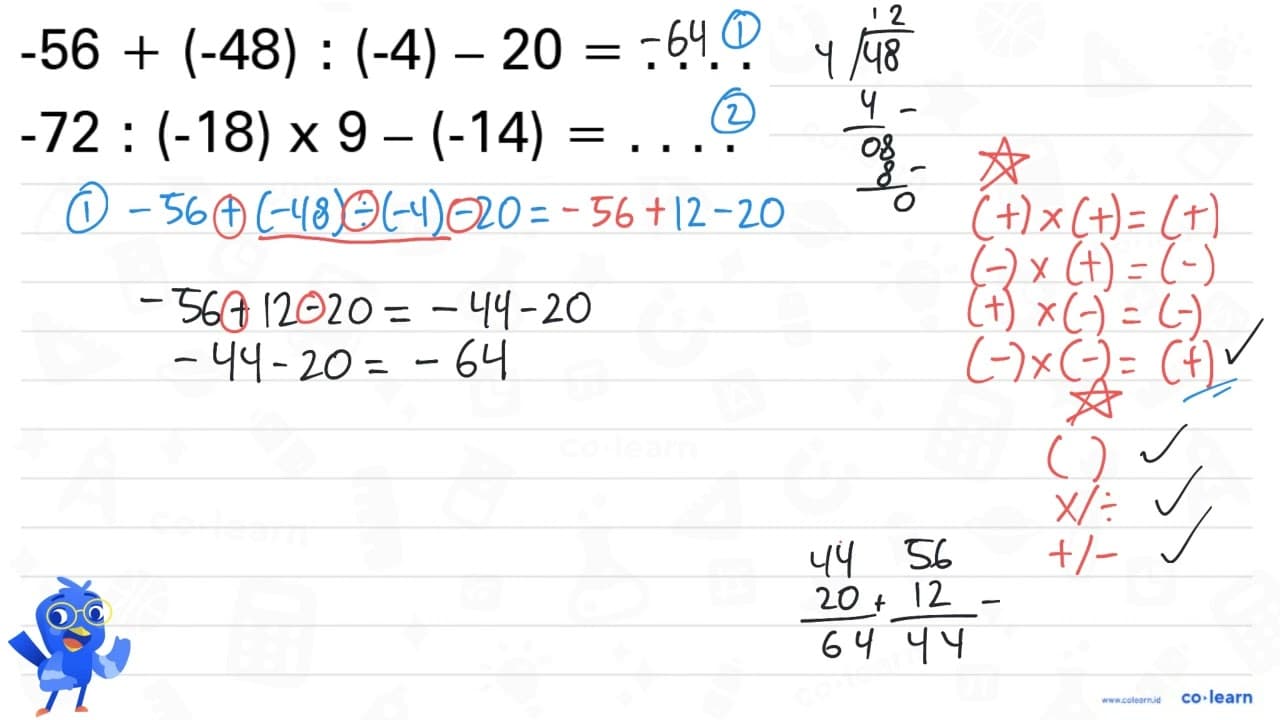 -56 + (-48) : (-4) – 20 = . . . . -64 ①
-72 : (-18) x 9 – (-14) = . . . . ②
① - 56 + (-48) ÷ (-4) - 20 = - 56 + 12 - 20
- 56 + 12 - 20 = - 44 - 20
- 44 - 20 = - 64
12
4 /48
4 -
08
8 -
0
(+) × (+) = (+)
(-) × (+) = (-)
(+) × (-) = (-)
(-) × (-) = (+) ✓
( ) ✓
×/÷ ✓
+/- ✓
44
20 +
64
56
12 -
44
co·learn
co·learn
co·learn
www.colearn.id co·learn